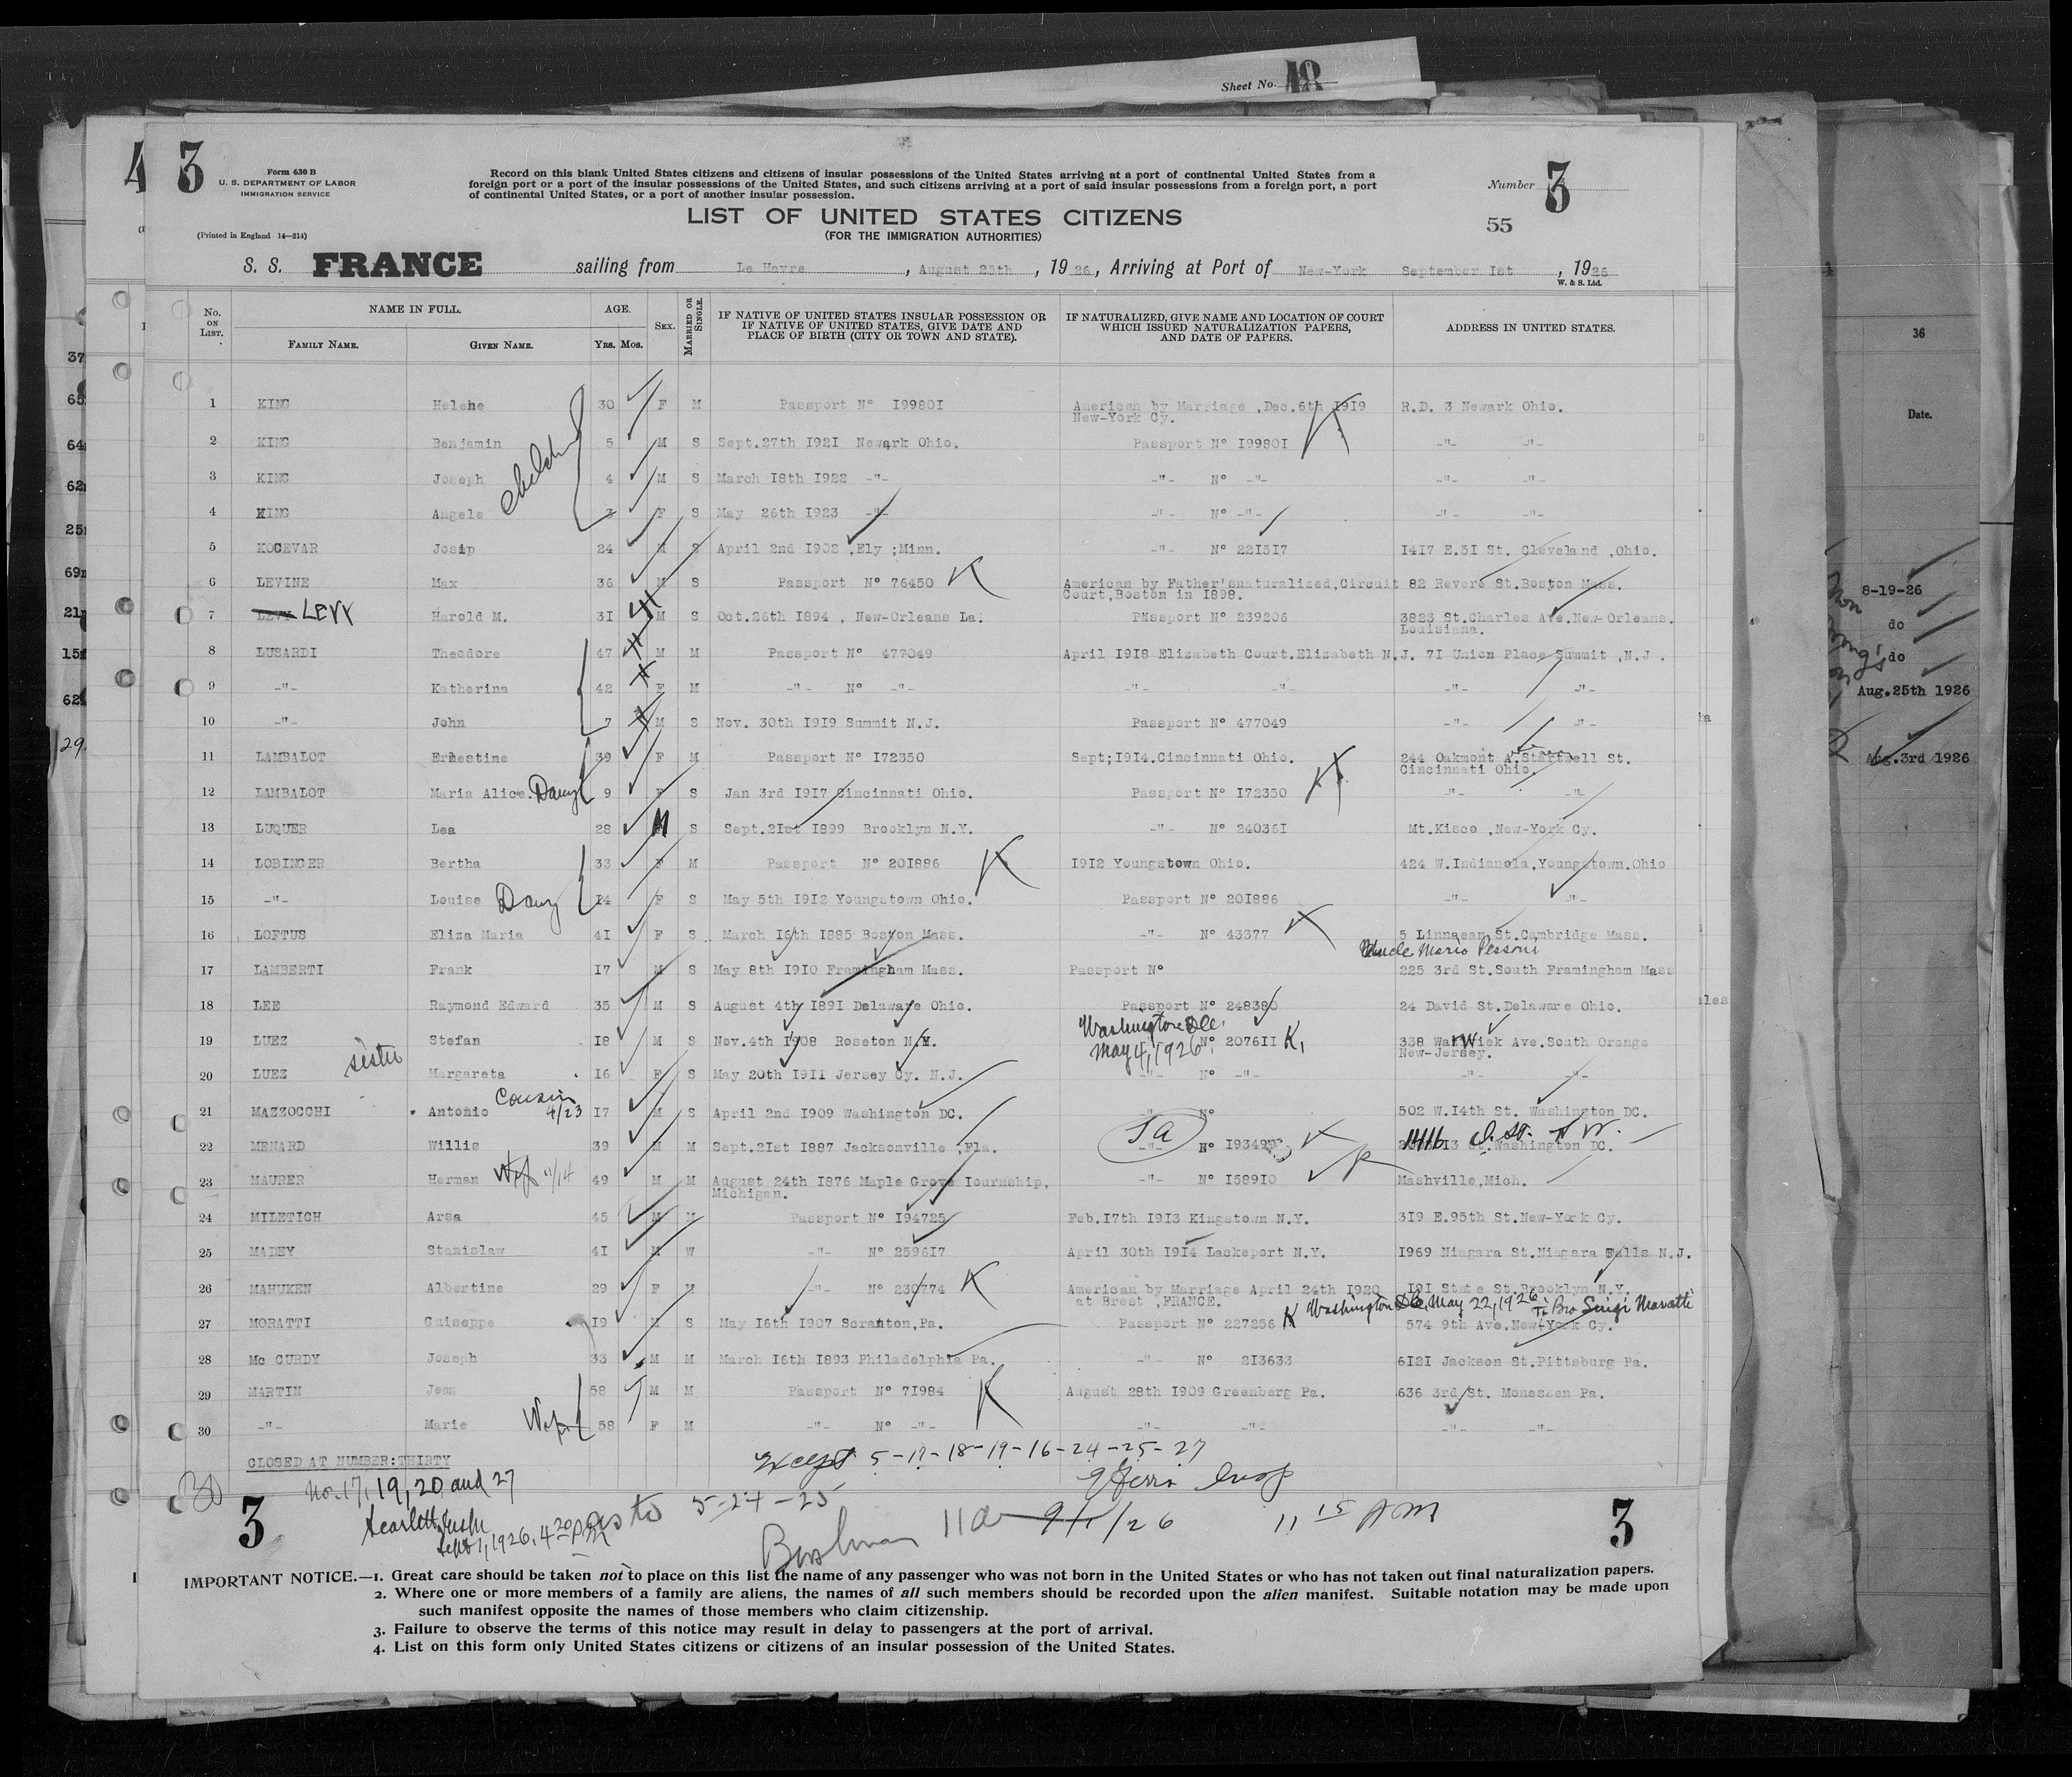 Sheet No. 18
4 3
Form 630 B
U. S. DEPARTMENT OF LABOR
IMMIGRATION SERVICE
(Printed in England 14—214)
Record on this blank United States citizens and citizens of insular possessions of the United States arriving at a port of continental United States from a
foreign port or a port of the insular possessions of the United States, and such citizens arriving at a port of said insular possessions from a foreign port, a port
of continental United States, or a port of another insular possession.
Number 3
LIST OF UNITED STATES CITIZENS
(FOR THE IMMIGRATION AUTHORITIES)
55
S. S. FRANCE sailing from Le Havre, August 25th, 1926, Arriving at Port of New-York September Ist, 1926
W. & S. Ltd.
No. ON LIST. NAME IN FULL. FAMILY NAME. GIVEN NAME. AGE. YRS. MOS. SEX. MARRIED OR SINGLE. IF NATIVE OF UNITED STATES INSULAR POSSESSION OR IF NATIVE OF UNITED STATES, GIVE DATE AND PLACE OF BIRTH (CITY OR TOWN AND STATE). IF NATURALIZED, GIVE NAME AND LOCATION OF COURT WHICH ISSUED NATURALIZATION PAPERS, AND DATE OF PAPERS. ADDRESS IN UNITED STATES.
1 KING Helene 30 F M Passport Nº I9980I American by Marriage ,Dec.6th I9I9 New-York Cy. R.D. 3 Newark Ohio.
2 KING Benjamin 5 M S Sept.27th I92I Newark Ohio. Passport Nº I9980I K -"- -"-
children
3 KING Joseph 4 M S March I8th I922 -"- -"- Nº -"- -"- -"-
4 KING Angele 3 F S May 26th I923 -"- -"- Nº -"- -"- -"-
5 KOCEVAR Josip 24 M S April 2nd I902 ,Ely ;Minn. -"- Nº 22I5I7 I4I7 E.5I St. Cleveland ,Ohio.
6 LEVINE Max 36 M S Passport Nº 76450 K American by Father'snaturalized,Circuit Court,Boston in I898. 82 Revere St.Boston Mass.
7 LEVY Harold M. 3I M S Oct.26th I894 , New-Orleans La. Passport Nº 239206 3823 St.Charles Ave.New-Orleans. Louisiana.
8 LUSARDI Theodore 47 M M Passport Nº 477049 April I9I8 Elizabeth Court.Elizabeth N.J. 7I Union Place Summit ,N.J .
9 -"- Katherina 42 F M -"- Nº -"- -"- -"- -"- -"-
10 -"- John 7 M S Nov. 30th I9I9 Summit N.J. Passport Nº 477049 -"- -"-
11 LAMBALOT Ernestine 39 F M Passport Nº I72350 Sept;I9I4.Cincinnati Ohio. 244 Oakmont St. Cincinnati Ohio.
12 LAMBALOT Maria Alice. Daug 9 F S Jan 3rd I9I7 Cincinnati Ohio. Passport Nº I72350 -"- -"-
13 LUQUER Lea 28 M S Sept.2Ist I899 Brooklyn N.Y. -"- Nº 24036I Mt.Kisco ,New-York Cy.
14 LOBINGER Bertha 33 F M Passport Nº 20I886 K I9I2 Youngstown Ohio. 424 W.Indianola,Youngstown.Ohio
15 -"- Louise Daug I4 F S May 5th I9I2 Youngstown Ohio. Passport Nº 20I886 -"- -"-
16 LOFTUS Eliza Maria 4I F S March I6th I885 Boston Mass. -"- Nº 43377 K 5 Linnaean St.Cambridge Mass.
Uncle Mario Pessoni
17 LAMBERTI Frank I7 M S May 8th I9I0 Framingham Mass. Passport Nº 225 3rd St.South Framingham Mass
18 LEE Raymond Edward 35 M S August 4th I89I Delaware Ohio. Passport Nº 248380 24 David St.Delaware Ohio.
Washington DC.
May 4, 1926
19 LUEZ Stefan I8 M S Nov.4th I908 Roseton N.Y. Nº 2076II K, 338 Warwick Ave.South Orange New-Jersey.
sister
20 LUEZ Margareta I6 F S May 20th I9II Jersey Cy. N.J. -"- Nº -"- -"- -"-
Cousin
4/23
21 MAZZOCCHI Antonio I7 M S April 2nd I909 Washington DC. -"- Nº 502 W.I4th St. Washington DC.
22 MENARD Willis 39 M M Sept.2Ist I887 Jacksonville ,Fla. -"- Nº I9349 K 1416 St. N W. Washington DC.
23 MAURER Herman Wif 11/14 49 M M August 24th I876 Maple Grove Iournship, Michigan. -"- Nº I589I0 K Nashville,Mich.
24 MILETICH Arsa 45 M M Passport Nº I94725 Feb.I7th I9I3 Kingstown N.Y. 3I9 E.95th St.New-York Cy.
25 MADEY Stanislaw 4I M W -"- Nº 2596I7 April 30th I9I4 Lackeport N.Y. I969 Niagara St.Niagara Falls N.J.
26 MAHUKEN Albertine 29 F M -"- Nº 230774 K American by Marriage April 24th I920 at Brest ,FRANCE. I9I State St.Brooklyn N.Y.
K Washington DC, May 22, 1926 To Bro Luigi Moratti
27 MORATTI Guiseppe I9 M S May I6th I907 Scranton,Pa. Passport Nº 227256 574 9th Ave.New-York Cy.
28 Mc CURDY Joseph 33 M M March I6th I893 Philadelphia Pa. -"- Nº 2I3633 6I2I Jackson St.Pittsburg Pa.
29 MARTIN Jean 58 M M Passport Nº 7I984 K August 28th I909 Greenberg Pa. 636 3rd St. Monessen Pa.
30 -"- Marie Wife 58 F M -"- Nº -"- -"- -"- -"- -"-
CLOSED AT NUMBER:THIRTY
Except 5-17-18-19-16-24-25-27
30
No. 17, 19, 20 and 27
Insp
Sept 1, 1926, 4 20 PM as to 5-24-25
3 11a 9/1/26 11 15 AM 3
IMPORTANT NOTICE.—1. Great care should be taken not to place on this list the name of any passenger who was not born in the United States or who has not taken out final naturalization papers.
2. Where one or more members of a family are aliens, the names of all such members should be recorded upon the alien manifest. Suitable notation may be made upon
such manifest opposite the names of those members who claim citizenship.
3. Failure to observe the terms of this notice may result in delay to passengers at the port of arrival.
4. List on this form only United States citizens or citizens of an insular possession of the United States.
36
Date.
8-19-26
do
do
Aug.25th 1926
Aug.3rd 1926